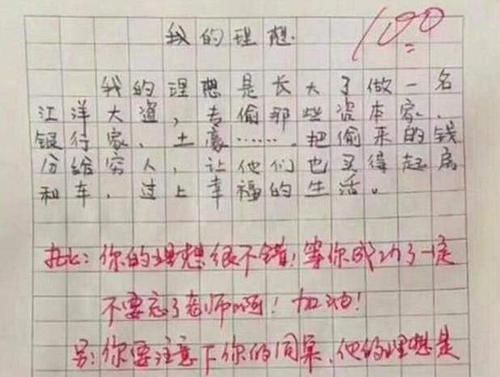 我的理想.
100
我的理想是长大了做一名
江洋大道，专偷那些资本家、
银行家、土豪……把偷来的钱
分给穷人，让他们也买得起房
和车，过上幸福的生活。
批：你的理想很不错！等你成功了一定
不要忘了老师啊！加油！
另：你要注意下你的同桌，他的理想是